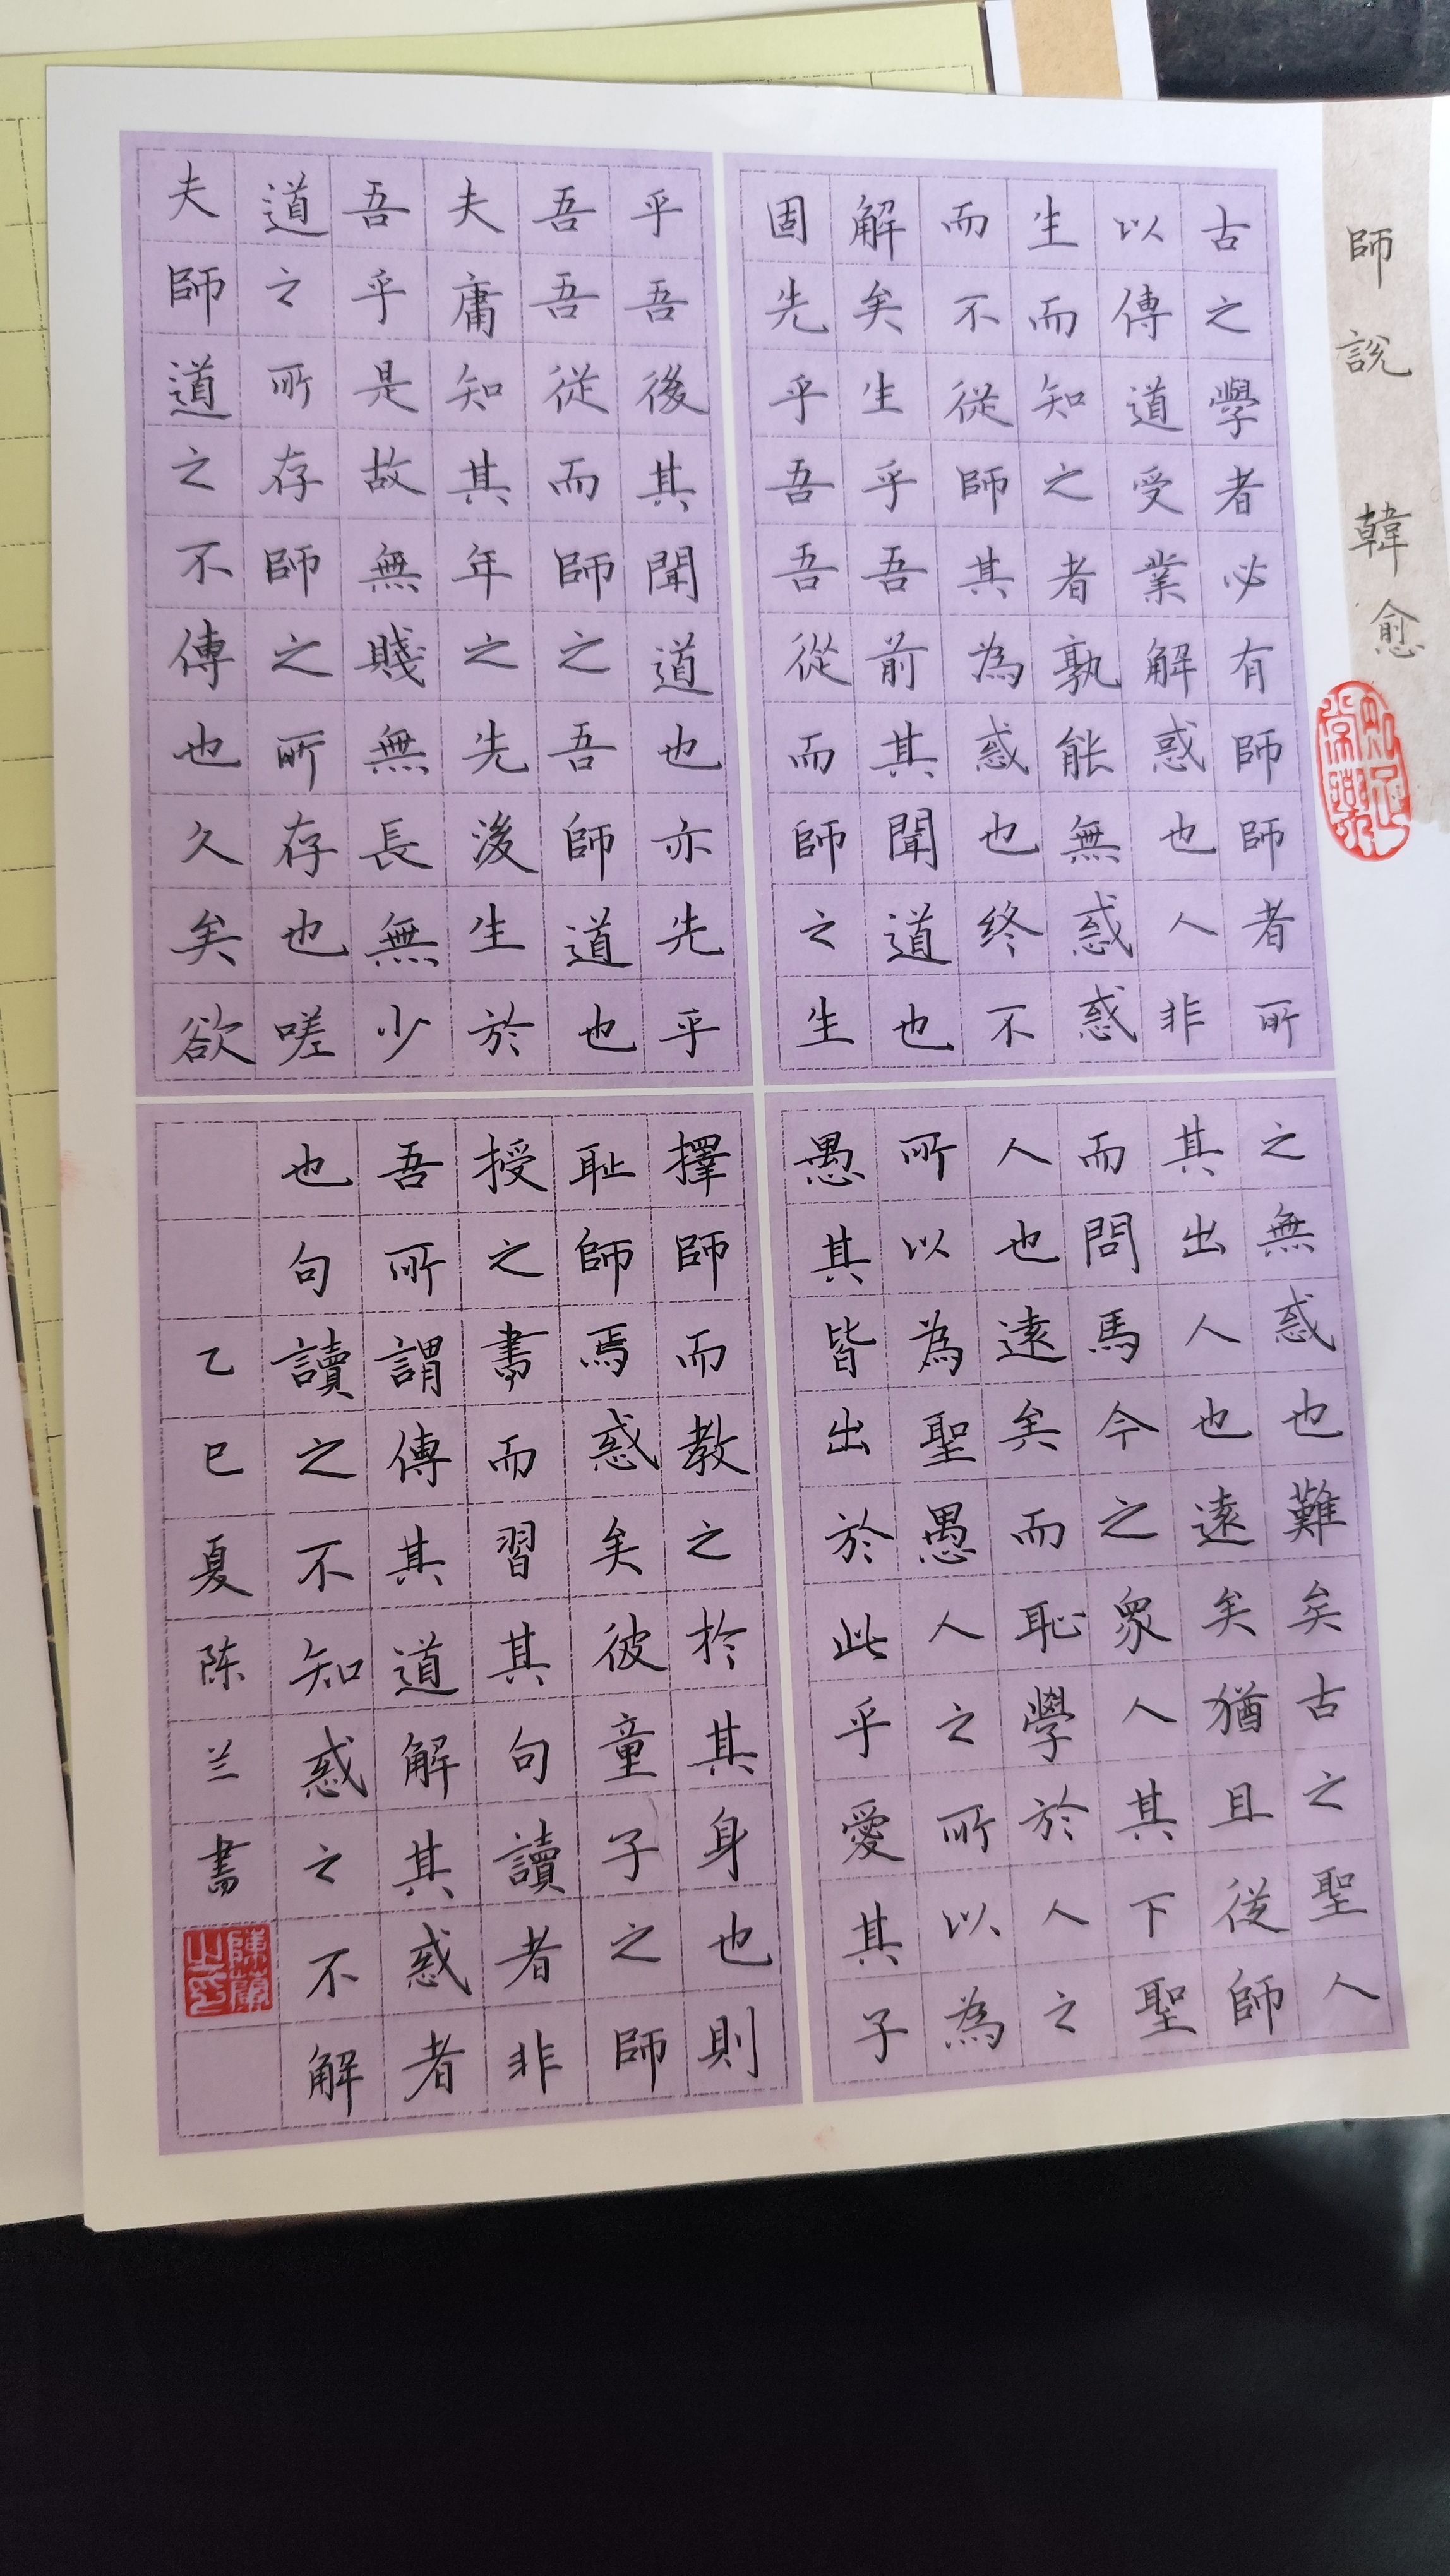 師說 韓愈
知足常樂
古之學者必有師師者所
以傳道受業解惑也人非
生而知之者孰能無惑惑
而不從師其為惑也终不
解矣生乎吾前其聞道也
固先乎吾吾從而師之生
乎吾後其聞道也亦先乎
吾吾從而師之吾師道也
夫庸知其年之先後生於
吾乎是故無賤無長無少
道之所存師之所存也嗟
夫師道之不傳也久矣欲
之無惑也難矣古之聖人
其出人也遠矣猶且從師
而問馬今之衆人其下聖
人也遠矣而恥學於人之
所以為聖愚人之所以為
愚其皆出於此乎愛其子
擇師而教之於其身也則
耻師焉惑矣彼童子之師
授之書而習其句讀者非
吾所謂傳其道解其惑者
也句讀之不知惑之不解
乙巳夏陈兰書
陳蘭之印